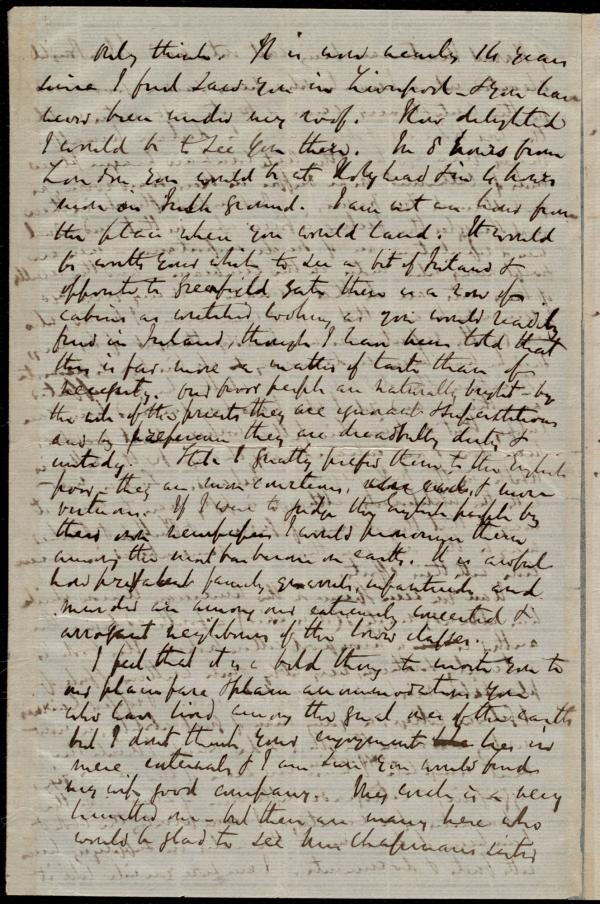 Only think. It is now nearly 14 years
since I first saw you in Liverpool - & you have
never been under my roof. How delighted
I would be to see you there. In 8 hours from
London you would be at Holyhead & in 4 hours
more on Irish ground. I am not an hour from
the place where you would land. It would
be worth your while to see a bit of Ireland &
opposite to Greenfield gate there is a row of
cabins as wretched looking as you would readily
find in Ireland, though I have been told that
this is far more a matter of taste than of
necessity. Our poor people are naturally bright - by
the aid of the priests they are ignorant & superstitious
and by preference they are dreadfully dirty &
untidy. Still I greatly prefer them to the English
poor - they are more courteous, & more
virtuous. If I were to judge the English people by
their own newspapers I would pronounce them
among the most barbarous on earth. It is awful
how prevalent family quarrels, infanticide and
murder are among our extremely conceited &
arrogant neighbours of the lower classes.
I feel that it is a bold thing to invite you to
our plain fare & plain accommodations you
who have lived among the great ones of the earth
but I don't think your enjoyment lies in
mere externals & I am sure you would find
my wife good company. My circle is a very
limited one - but there are many here who
would be glad to see Mrs Chapman's sister